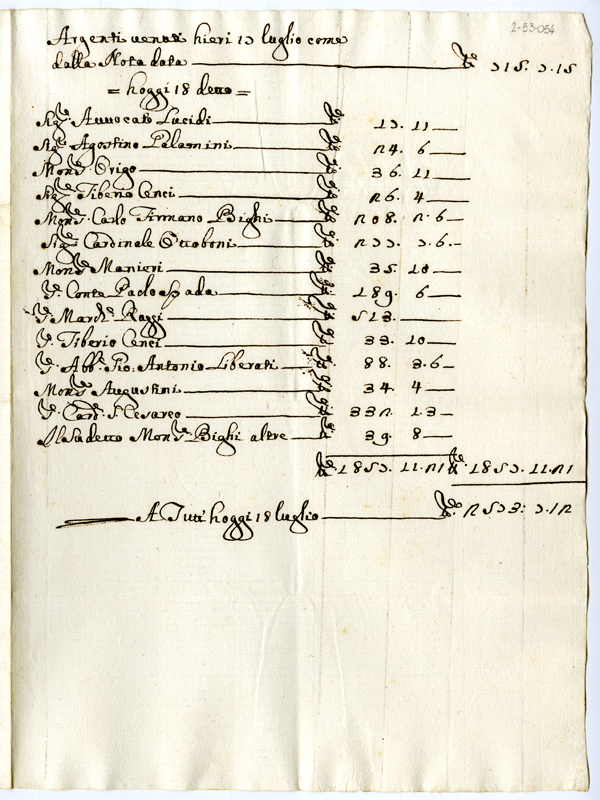 2-53-054
Argenti venuti hieri 17 luglio come
dalla Nota data ₶ 715. 7. 15
= hoggi 18 detto =
Sigr. Avvocato Lucidi ₶ 17. 11
Sigr. Agostino Palamini ₶ 24. 6
Monsr. Origo ₶ 36. 11
Sigr. Tiberio Cenci ₶ 26. 4
Monsr. Carlo Firmano Bighi ₶ 208. 2. 6
Sigr. Cardinale Ottoboni ₶ 277. 7. 6
Monsr. Manieri ₶ 35. 10
Sr. Conte Paolo Spada ₶ 189. 6
Sr. March. Raggi ₶ 513.
Sr. Tiberio Cenci ₶ 33. 10
Sr. Abb. Pio: Antonio Liberati ₶ 88. 3. 6
Monsr. Augustini ₶ 34. 4
Sr. Card. S. Cesareo ₶ 332. 1. 3
Al sudetto Monsr. Bighi altre ₶ 39. 8
₶ 1857. 11. 21 ₶ 1857. 11. 21
A Tutt' hoggi 18 luglio ₶ 2573: 7. 12